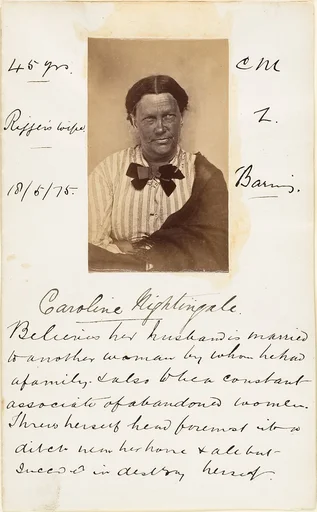 45 yrs.
CM
Rigger's wife
1.
18/5/75.
Barnis.
Caroline Nightingale.
Believes her husband is married
to another woman by whom he had
a family. & also to be a constant
associate of abandoned women.
Threw herself head foremost into a
ditch near her home & all but
succeeded in destroy herself.